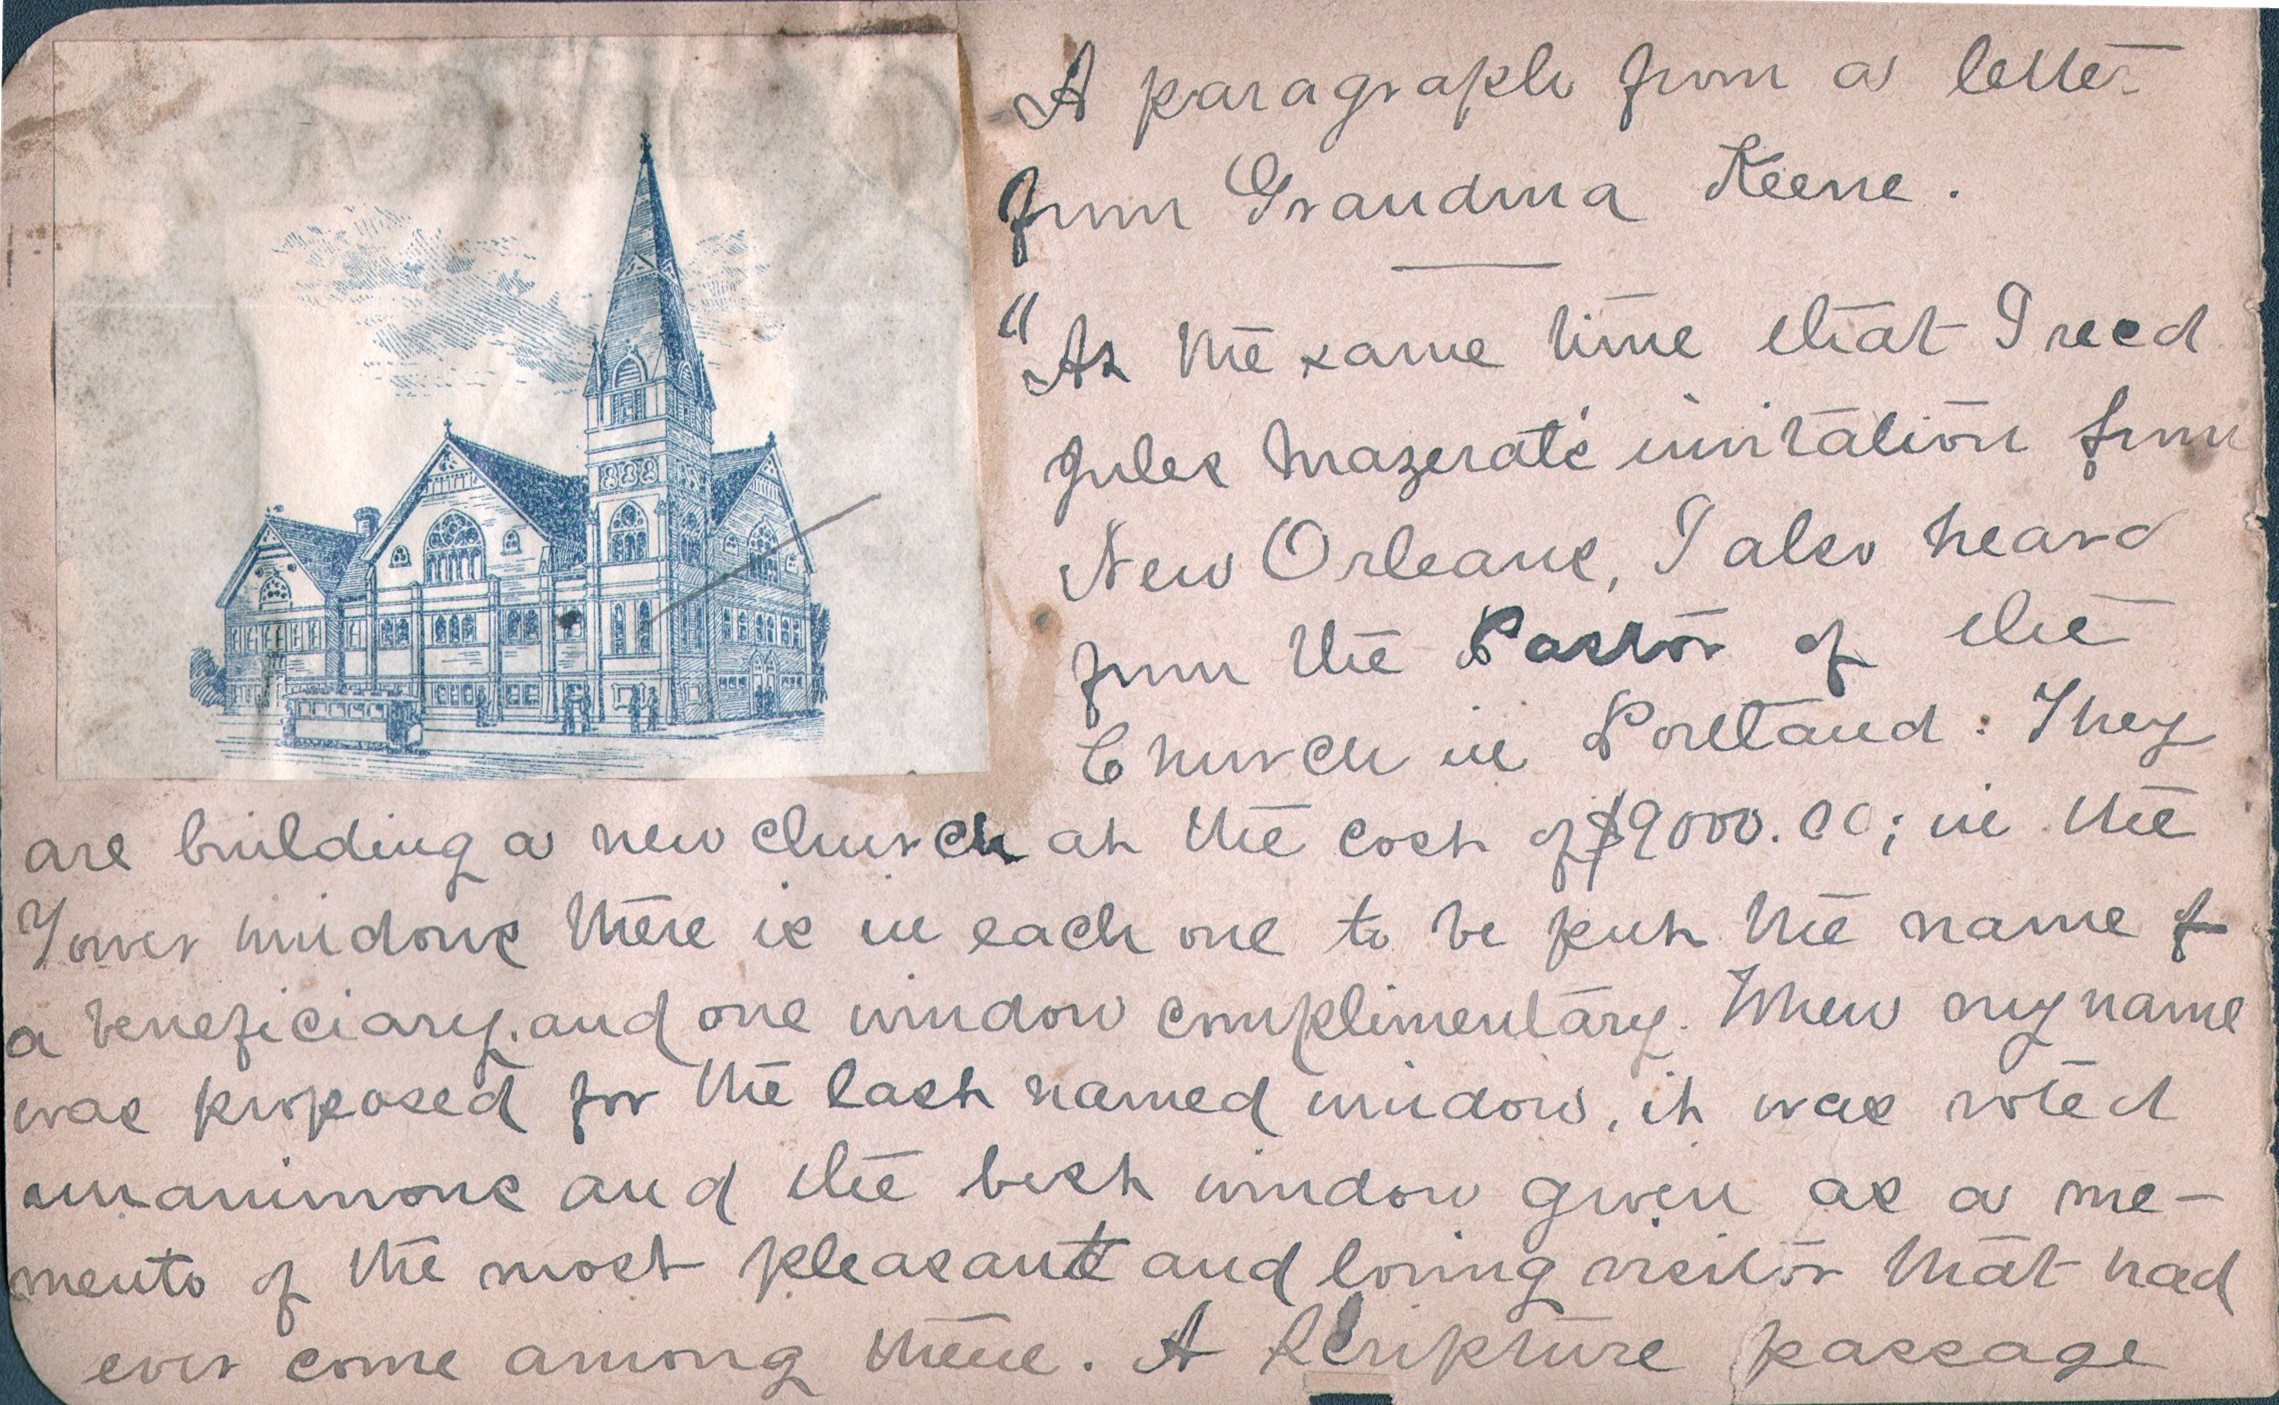 A paragraph from a letter
from Grandma Keene.
"At the same time that I recd
Jules Mazerat's invitation from
New Orleans, I also heard
from the Pastor of the
Church in Portland: They
are building a new church at the cost of $9000.00; in the
Tower windows there is in each one to be put the name of
a beneficiary, and one window complimentary. When my name
was proposed for the last named window, it was voted
unanimous and the best window given as a me-
mento of the most pleasant and loving visitor that had
ever come among them. A Scripture passage